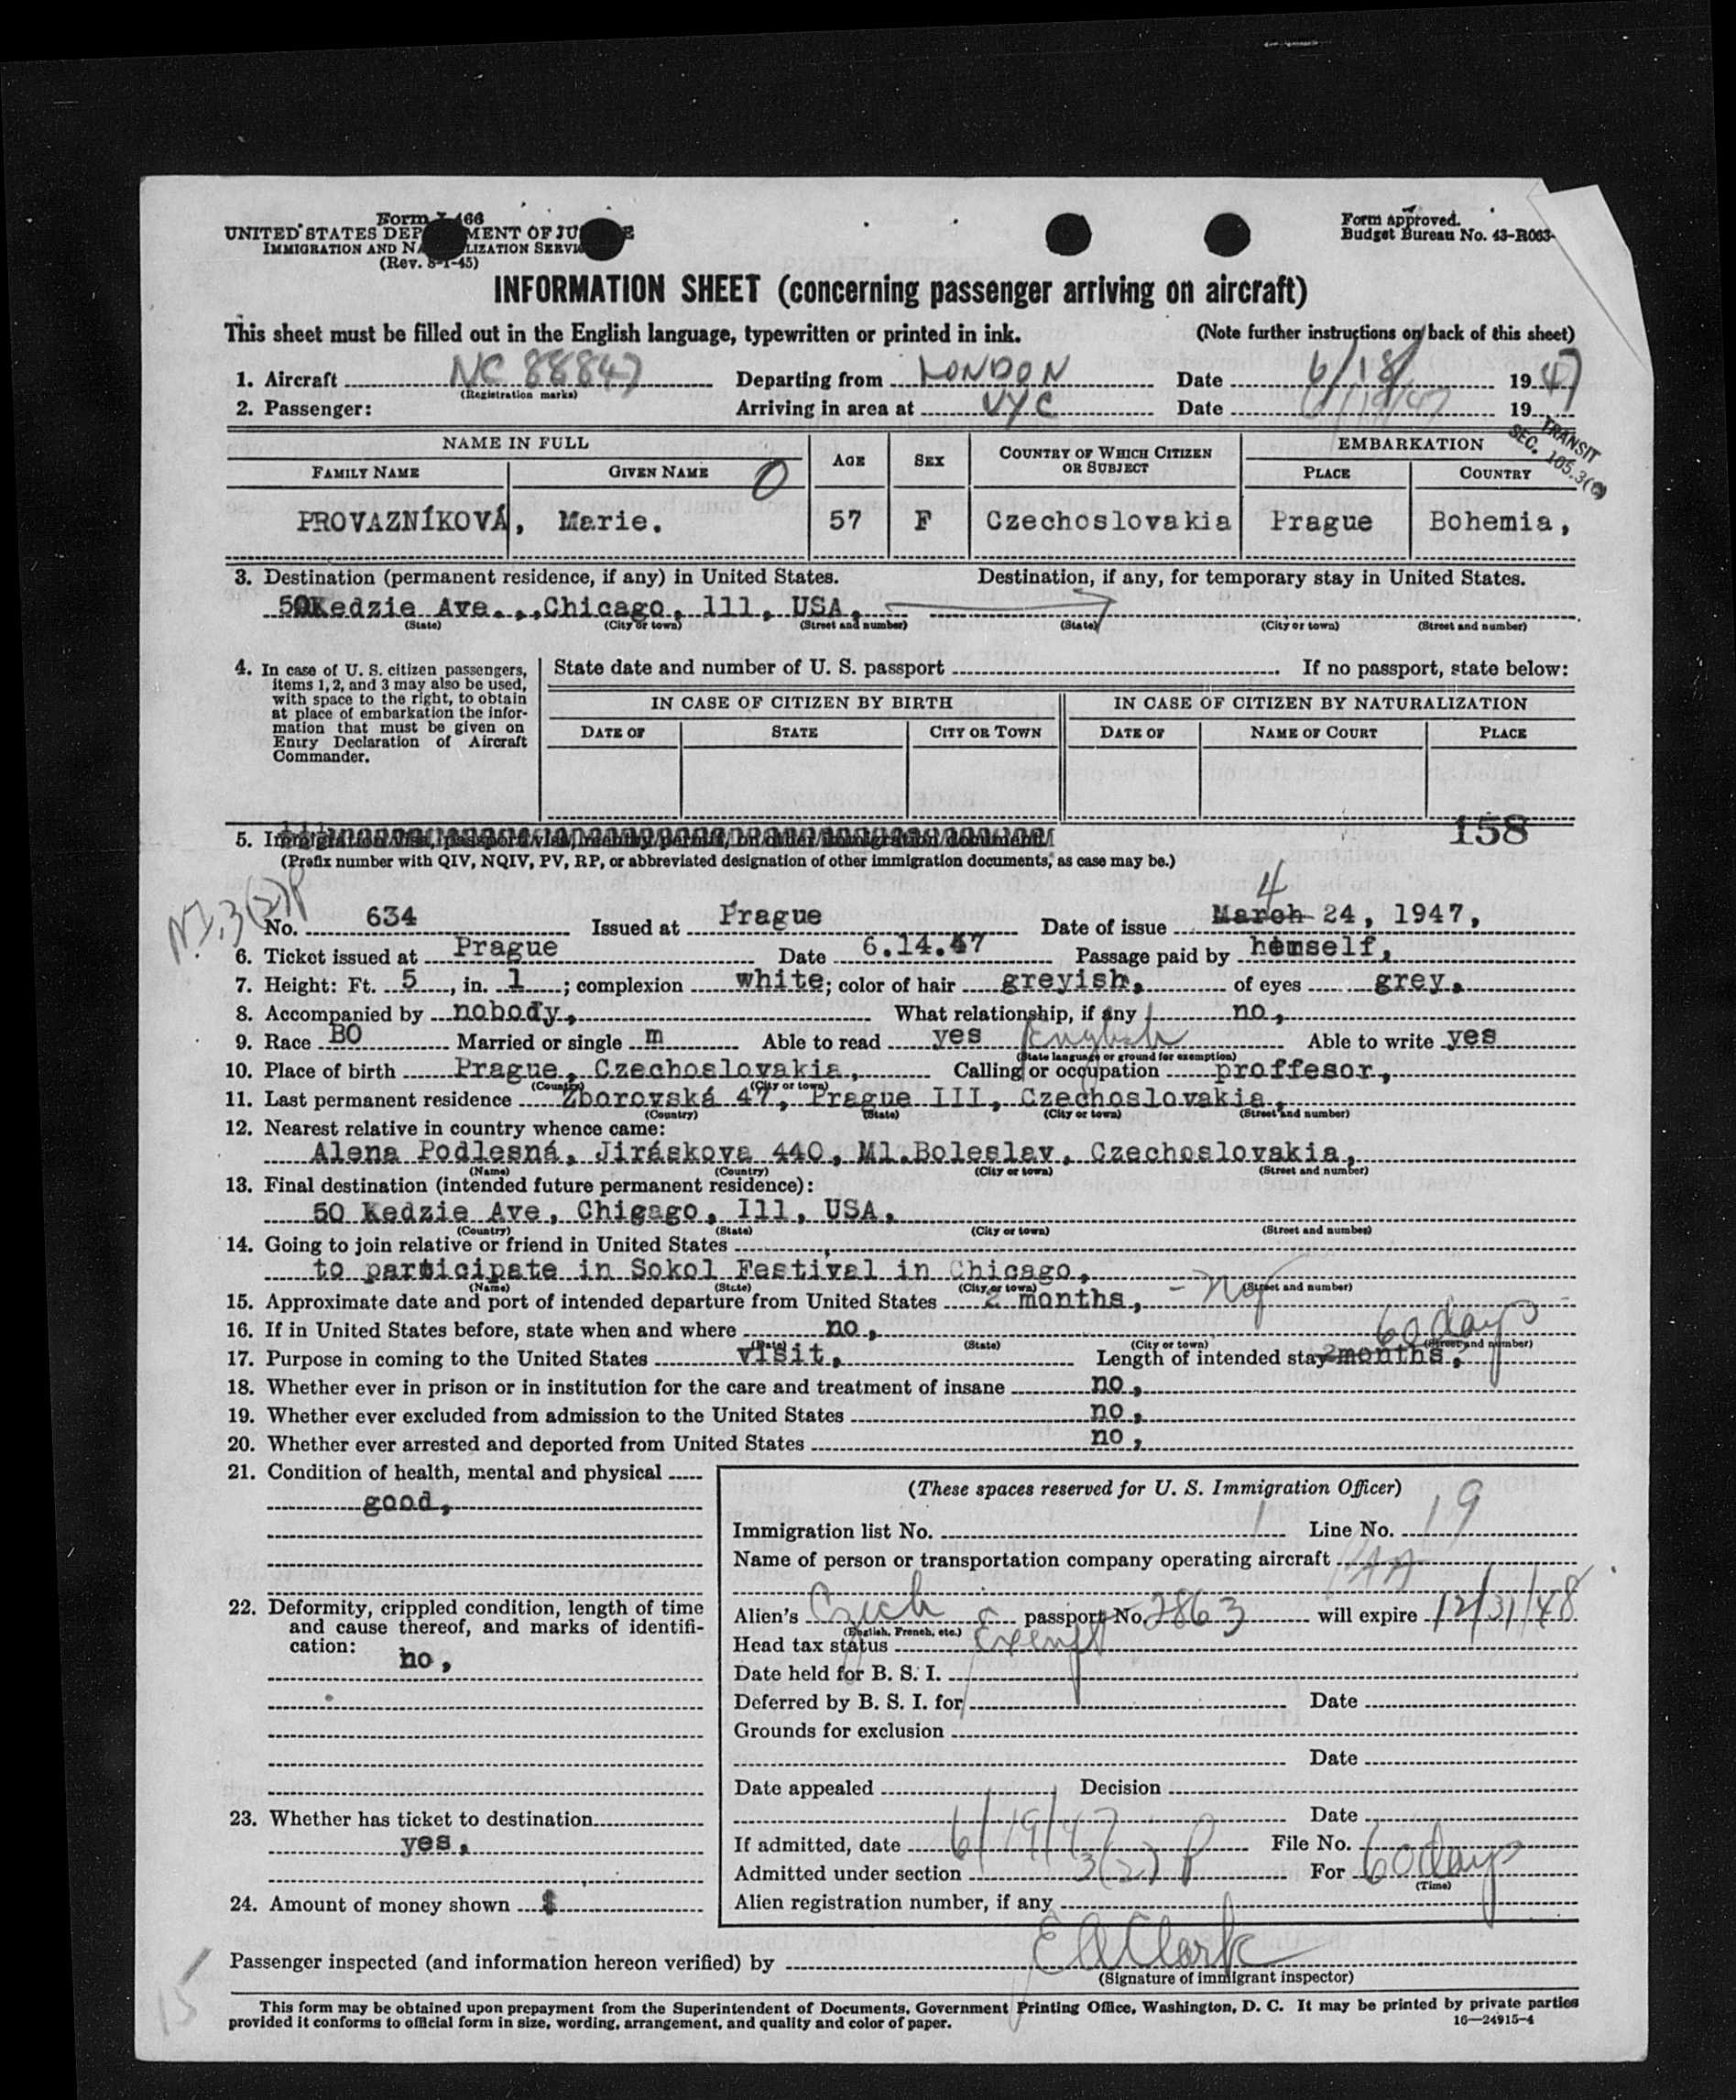 Form I-466
UNITED STATES DEPARTMENT OF JUSTICE
IMMIGRATION AND NATURALIZATION SERVICE
(Rev. 8-1-45)
Form approved.
Budget Bureau No. 43-R063-
INFORMATION SHEET (concerning passenger arriving on aircraft)
This sheet must be filled out in the English language, typewritten or printed in ink. (Note further instructions on back of this sheet)
1. Aircraft NC 88847 Departing from LONDON Date 6/18/ 1947
(Registration marks)
2. Passenger: Arriving in area at NYC Date 6/19/47 19
TRANSIT
SEC. 105.3(c)
NAME IN FULL AGE SEX COUNTRY OF WHICH CITIZEN OR SUBJECT EMBARKATION
FAMILY NAME GIVEN NAME PLACE COUNTRY
PROVAZNÍKOVÁ, Marie. 57 F Czechoslovakia Prague Bohemia,
3. Destination (permanent residence, if any) in United States. Destination, if any, for temporary stay in United States.
50Kedzie Ave.,,Chicago, Ill, USA,
(State) (City or town) (Street and number) (State) (City or town) (Street and number)
4. In case of U. S. citizen passengers, items 1, 2, and 3 may also be used, with space to the right, to obtain at place of embarkation the information that must be given on Entry Declaration of Aircraft Commander.
State date and number of U. S. passport If no passport, state below:
IN CASE OF CITIZEN BY BIRTH IN CASE OF CITIZEN BY NATURALIZATION
DATE OF STATE CITY OR TOWN DATE OF NAME OF COURT PLACE
158
5. Immigration visa, passport visa, reentry permit, or other immigration document.
(Prefix number with QIV, NQIV, PV, RP, or abbreviated designation of other immigration documents, as case may be.)
4
No. 634 Issued at Prague Date of issue March 24, 1947,
6. Ticket issued at Prague Date 6.14.47 Passage paid by hemself,
7. Height: Ft. 5, in. 1; complexion white; color of hair greyish, of eyes grey,
8. Accompanied by nobody, What relationship, if any no,
9. Race BO Married or single m Able to read yes English Able to write yes
(State language or ground for exemption)
10. Place of birth Prague, Czechoslovakia, Calling or occupation proffesor,
(Country) (City or town)
11. Last permanent residence Zborovská 47, Prague III, Czechoslovakia,
(Country) (State) (City or town) (Street and number)
12. Nearest relative in country whence came:
Alena Podlesná, Jiráskova 440, Ml.Boleslav, Czechoslovakia,
(Name) (Country) (City or town) (Street and number)
13. Final destination (intended future permanent residence):
50 Kedzie Ave, Chigago, Ill, USA,
(Country) (State) (City or town) (Street and number)
14. Going to join relative or friend in United States
to participate in Sokol Festival in Chicago,
(Name) (State) (City or town) (Street and number)
15. Approximate date and port of intended departure from United States 2 months, - NY
16. If in United States before, state when and where no,
(Date) (State) (City or town) (Street and number)
60 days
17. Purpose in coming to the United States visit, Length of intended stay 2months,
18. Whether ever in prison or in institution for the care and treatment of insane no,
19. Whether ever excluded from admission to the United States no,
20. Whether ever arrested and deported from United States no,
21. Condition of health, mental and physical
good,
22. Deformity, crippled condition, length of time and cause thereof, and marks of identification:
no,
23. Whether has ticket to destination
yes,
24. Amount of money shown $
(These spaces reserved for U. S. Immigration Officer)
Immigration list No. 1 Line No. 19
Name of person or transportation company operating aircraft
Alien's Czech passport No. 2863 will expire 12/31/48
(English, French, etc.)
Head tax status Exempt
Date held for B. S. I.
Deferred by B. S. I. for Date
Grounds for exclusion
Date
Date appealed Decision
Date
If admitted, date 6/19/47 File No.
Admitted under section 3(2) P For 60 days
(Time)
Alien registration number, if any
Passenger inspected (and information hereon verified) by E A Clark
(Signature of immigrant inspector)
15
This form may be obtained upon prepayment from the Superintendent of Documents, Government Printing Office, Washington, D. C. It may be printed by private parties
provided it conforms to official form in size, wording, arrangement, and quality and color of paper. 16—24915-4